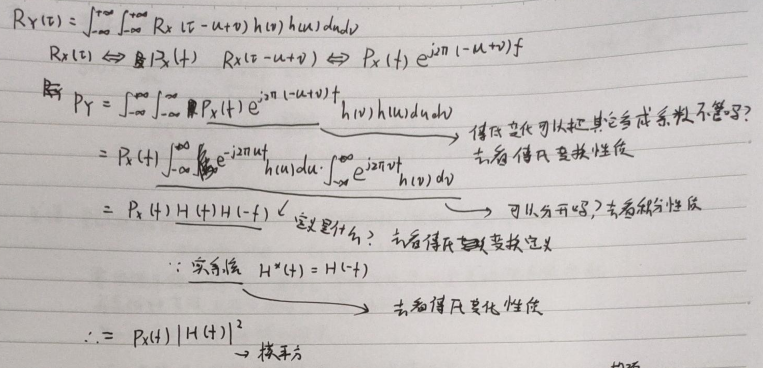 R_Y(τ) = ∫_{-∞}^{+∞} ∫_{-∞}^{+∞} R_X (τ-u+v) h(v) h(u) du dv
R_X(τ) ⇔ P_X(f) R_X(τ-u+v) ⇔ P_X(f) e^{j2π(-u+v)f}
P_Y = ∫_{-∞}^{∞} ∫_{-∞}^{∞} P_X(f) e^{j2π(-u+v)f} h(v) h(u) du dv
→ 傅氏变化可以把其它当成系数不管吗?
去看傅氏变换性质
= P_X(f) ∫_{-∞}^{∞} e^{-j2πuf} h(u) du · ∫_{-∞}^{∞} e^{j2πvf} h(v) dv
→ 可以分开吗?去看积分性质
= P_X(f) H(f) H(-f) ↙ 定义是什么? 去看傅氏变换定义
∵ 实系统 H*(f) = H(-f)
→ 去看傅氏变化性质
∴ = P_X(f) |H(f)|²
→ 模平方